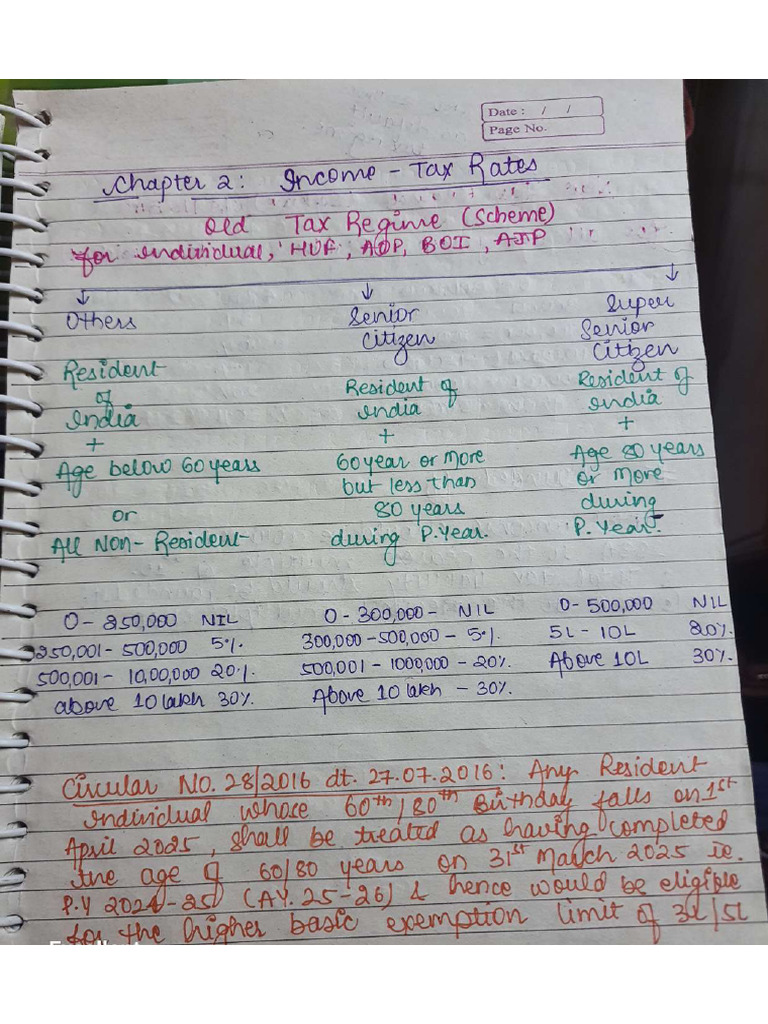 Date : / /
Page No.
Chapter 2: Income - Tax Rates
Old Tax Regime (Scheme)
for individual, HUF, AOP, BOI, AJP
Others Senior Citizen Super Senior Citizen
Resident of India + Age below 60 years or All Non-Resident
Resident of India + 60 year or more but less than 80 years during P.Year.
Resident of India + Age 80 years or more during P. Year.
0 - 250,000 NIL
250,001 - 500,000 5%.
500,001 - 10,00,000 20%.
above 10 lakh 30%.
0 - 300,000 - NIL
300,000 - 500,000 - 5%.
500,001 - 1000,000 - 20%.
Above 10 lakh - 30%.
0 - 500,000 NIL
5L - 10L 20%.
Above 10L 30%.
Circular NO. 28/2016 dt. 27.07.2016: Any Resident
individual whose 60th/80th Birthday falls on 1st
April 2025, shall be treated as having completed
the age of 60/80 years on 31st March 2025 ie.
P.Y 2024-25 (AY. 25-26) & hence would be eligible
for the higher basic exemption limit of 3L/5L